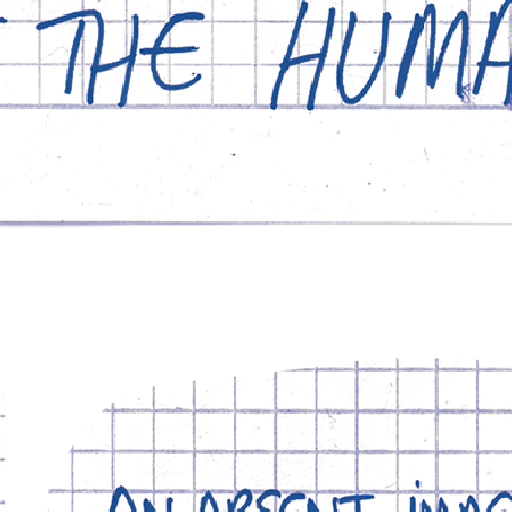 THE HUMA
AN ABSENT IMAG